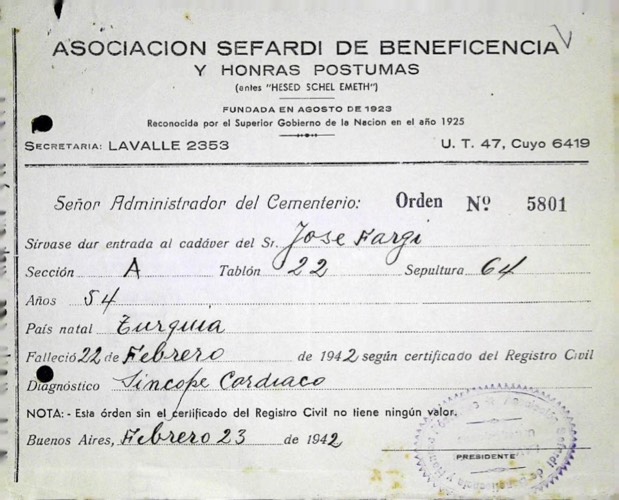 ASOCIACION SEFARDI DE BENEFICENCIA
Y HONRAS POSTUMAS
(antes "HESED SCHEL EMETH")
FUNDADA EN AGOSTO DE 1923
Reconocida por el Superior Gobierno de la Nacion en el año 1925
SECRETARIA: LAVALLE 2353 U. T. 47, Cuyo 6419
Señor Administrador del Cementerio: Orden Nº 5801
Sírvase dar entrada al cadáver del Sr. Jose Fargi
Sección A Tablón 22 Sepultura 64
Años 54
País natal Turquia
Falleció 22 de Febrero de 1942 según certificado del Registro Civil
Diagnóstico Sincope Cardiaco
NOTA: - Esta órden sin el certificado del Registro Civil no tiene ningún valor.
Buenos Aires, Febrero 23 de 1942
PRESIDENTE